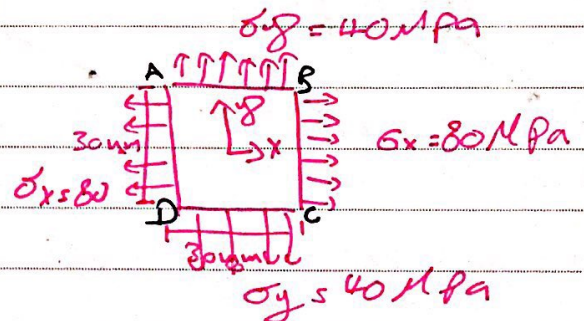 σy = 40 MPa
A B
y
30mm x σx = 80 MPa
σx = 80
D C
30mm
σy = 40 MPa